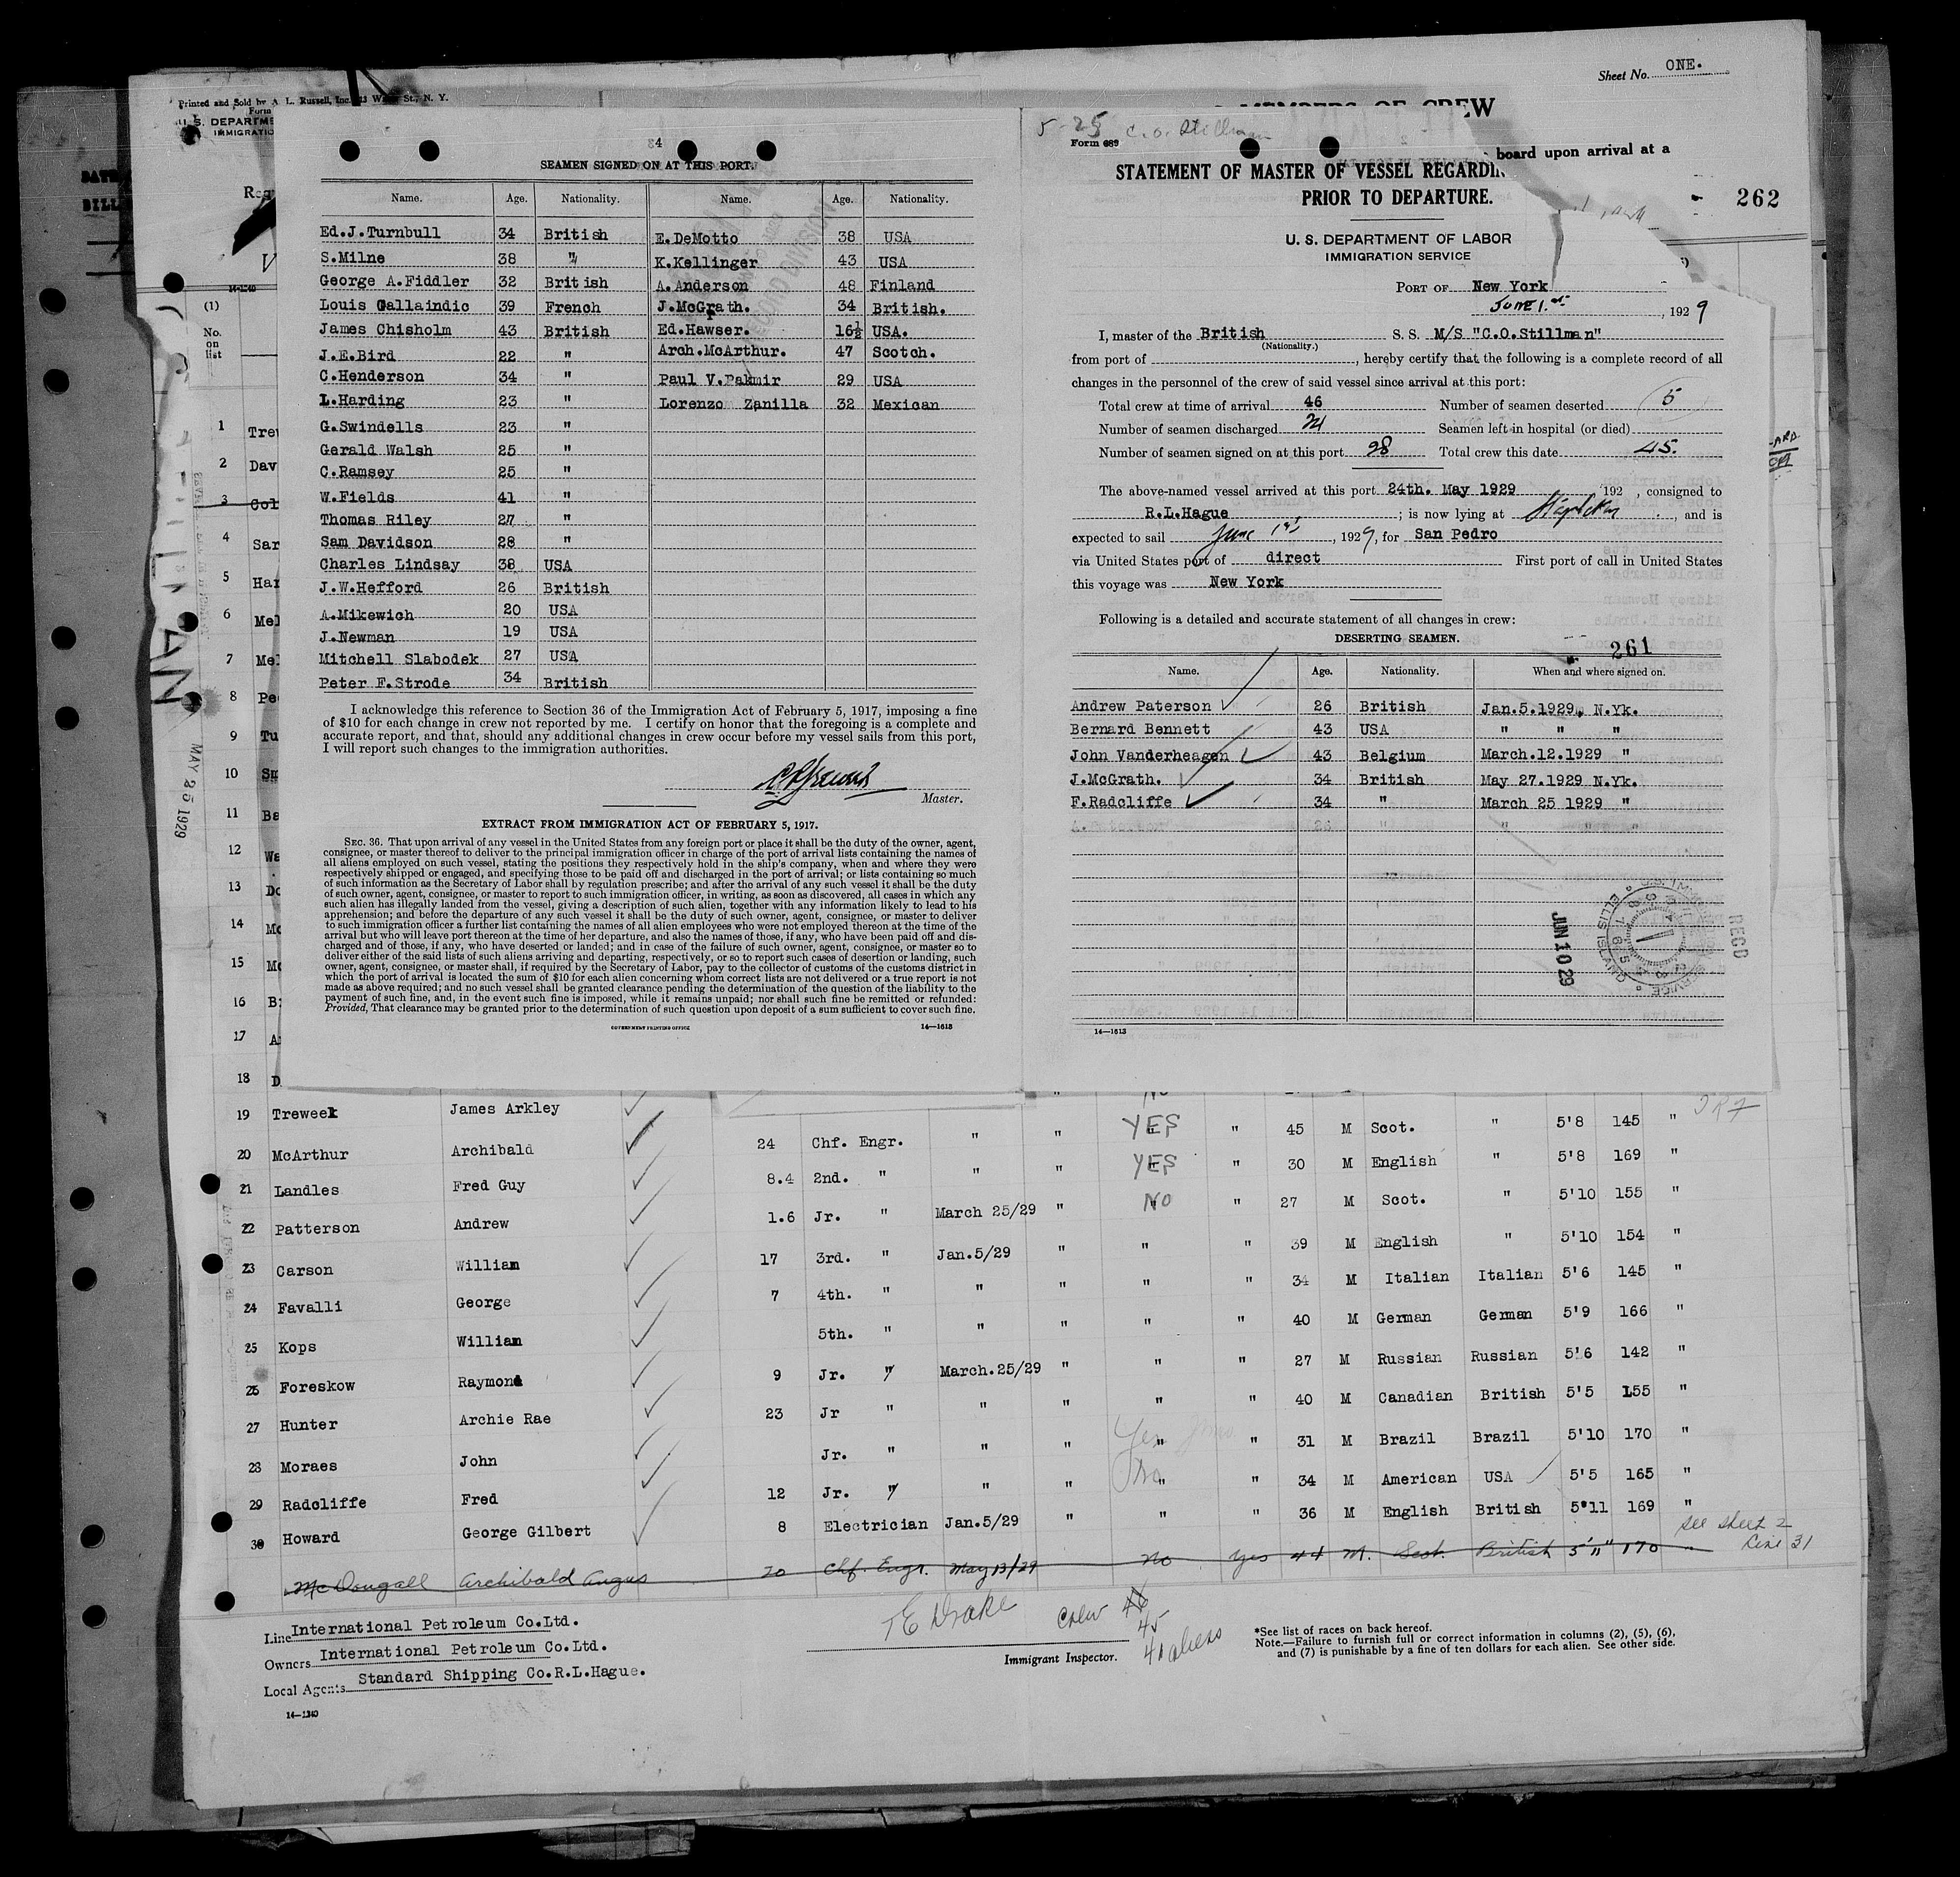 Sheet No. ONE.
Printed and Sold by A. L. Russell, Inc.
St., N. Y.
Form
U. S. DEPARTME
IMMIGRATIO
MEMBERS OF CREW
board upon arrival at a
262
(1)
No.
on
list
MAY 25 1929
4
SEAMEN SIGNED ON AT THIS PORT.
Name. Age. Nationality. Name. Age. Nationality.
Ed.J.Turnbull 34 British E.DeMotto 38 USA
S.Milne 38 " K.Kellinger 43 USA
George A.Fiddler 32 British A.Anderson 48 Finland
Louis Gallaindic 39 French J.McGrath. 34 British.
James Chisholm 43 British Ed.Hawser. 16½ USA.
J.E.Bird 22 " Arch.McArthur. 47 Scotch.
C.Henderson 34 " Paul V.Pakmir 29 USA
L.Harding 23 " Lorenzo Zanilla 32 Mexican
G.Swindells 23 "
Gerald Walsh 25 "
C.Ramsey 25 "
W.Fields 41 "
Thomas Riley 27 "
Sam Davidson 28 "
Charles Lindsay 38 USA
J.W.Hefford 26 British
A.Mikewich 20 USA
J.Newman 19 USA
Mitchell Slabodek 27 USA
Peter F.Strode 34 British
I acknowledge this reference to Section 36 of the Immigration Act of February 5, 1917, imposing a fine
of $10 for each change in crew not reported by me. I certify on honor that the foregoing is a complete and
accurate report, and that, should any additional changes in crew occur before my vessel sails from this port,
I will report such changes to the immigration authorities.
Master.
EXTRACT FROM IMMIGRATION ACT OF FEBRUARY 5, 1917.
SEC. 36. That upon arrival of any vessel in the United States from any foreign port or place it shall be the duty of the owner, agent,
consignee, or master thereof to deliver to the principal immigration officer in charge of the port of arrival lists containing the names of
all aliens employed on such vessel, stating the positions they respectively hold in the ship's company, when and where they were
respectively shipped or engaged, and specifying those to be paid off and discharged in the port of arrival; or lists containing so much
of such information as the Secretary of Labor shall by regulation prescribe; and after the arrival of any such vessel it shall be the duty
of such owner, agent, consignee, or master to report to such immigration officer, in writing, as soon as discovered, all cases in which any
such alien has illegally landed from the vessel, giving a description of such alien, together with any information likely to lead to his
apprehension; and before the departure of any such vessel it shall be the duty of such owner, agent, consignee, or master to deliver
to such immigration officer a further list containing the names of all alien employees who were not employed thereon at the time of the
arrival but who will leave port thereon at the time of her departure, and also the names of those, if any, who have been paid off and dis-
charged and of those, if any, who have deserted or landed; and in case of the failure of such owner, agent, consignee, or master so to
deliver either of the said lists of such aliens arriving and departing, respectively, or so to report such cases of desertion or landing, such
owner, agent, consignee, or master shall, if required by the Secretary of Labor, pay to the collector of customs of the customs district in
which the port of arrival is located the sum of $10 for each alien concerning whom correct lists are not delivered or a true report is not
made as above required; and no such vessel shall be granted clearance pending the determination of the question of the liability to the
payment of such fine, and, in the event such fine is imposed, while it remains unpaid; nor shall such fine be remitted or refunded:
Provided, That clearance may be granted prior to the determination of such question upon deposit of a sum sufficient to cover such fine.
GOVERNMENT PRINTING OFFICE 14—1613
5-25 C. O. Stillman
Form 689
STATEMENT OF MASTER OF VESSEL REGARDIN
PRIOR TO DEPARTURE.
U. S. DEPARTMENT OF LABOR
IMMIGRATION SERVICE
PORT OF New York
June 1.st, 1929
I, master of the British S. S. M/S "C.O.Stillman"
(Nationality.)
from port of , hereby certify that the following is a complete record of all
changes in the personnel of the crew of said vessel since arrival at this port:
Total crew at time of arrival 46 Number of seamen deserted 5
Number of seamen discharged 24 Seamen left in hospital (or died)
Number of seamen signed on at this port 28 Total crew this date 45.
The above-named vessel arrived at this port 24th. May 1929 192 , consigned to
R.L.Hague ; is now lying at Stapleton , and is
expected to sail June 1st, 1929, for San Pedro
via United States port of direct First port of call in United States
this voyage was New York
Following is a detailed and accurate statement of all changes in crew:
DESERTING SEAMEN.
261
Name. Age. Nationality. When and where signed on.
Andrew Paterson 26 British Jan.5.1929, N.Yk.
Bernard Bennett 43 USA " " "
John Vanderheagen 43 Belgium March.12.1929 "
J.McGrath. 34 British May 27.1929 N.Yk.
F.Radcliffe 34 " March 25 1929 "
JUN 10 29
RECD
ELLIS ISLAND
14—1613
1 Trew
2 Dav
3 Col
4 Sar
5 Har
6 Mel
7 Mel
8 Pe
9 Tu
10 Sm
11 Ba
12 Wa
13 Do
14 Mc
15 Mc
16 B
17 A
18 D
19 Treweek James Arkley
20 McArthur Archibald 24 Chf. Engr. " " YES " 45 M Scot. " 5'8 145 "
21 Landles Fred Guy 8.4 2nd. " " " YES " 30 M English " 5'8 169 "
22 Patterson Andrew 1.6 Jr. " March 25/29 " NO " 27 M Scot. " 5'10 155 "
23 Carson William 17 3rd. " Jan.5/29 " " " 39 M English " 5'10 154 "
24 Favalli George 7 4th. " " " " " 34 M Italian Italian 5'6 145 "
25 Kops William 5th. " " " " " 40 M German German 5'9 166 "
26 Foreskow Raymond 9 Jr. " March.25/29 " " " 27 M Russian Russian 5'6 142 "
27 Hunter Archie Rae 23 Jr " " " " " 40 M Canadian British 5'5 155 "
28 Moraes John Jr. " " " " " 31 M Brazil Brazil 5'10 170 "
29 Radcliffe Fred 12 Jr. " " " " " 34 M American USA 5'5 165 "
30 Howard George Gilbert 8 Electrician Jan.5/29 " " " 36 M English British 5'11 169 "
McDougall Archibald Angus 20 Chf. Engr. May 13/29 No Yes 44 M. Scot. British 5'11" 170 "
See sheet 2
Line 31
Line International Petroleum Co.Ltd.
Owners International Petroleum Co.Ltd.
Local Agents Standard Shipping Co.R.L.Hague.
14—1340
T E Drake
Immigrant Inspector.
Crew 46
45
41 aliens
*See list of races on back hereof.
Note.—Failure to furnish full or correct information in columns (2), (5), (6),
and (7) is punishable by a fine of ten dollars for each alien. See other side.